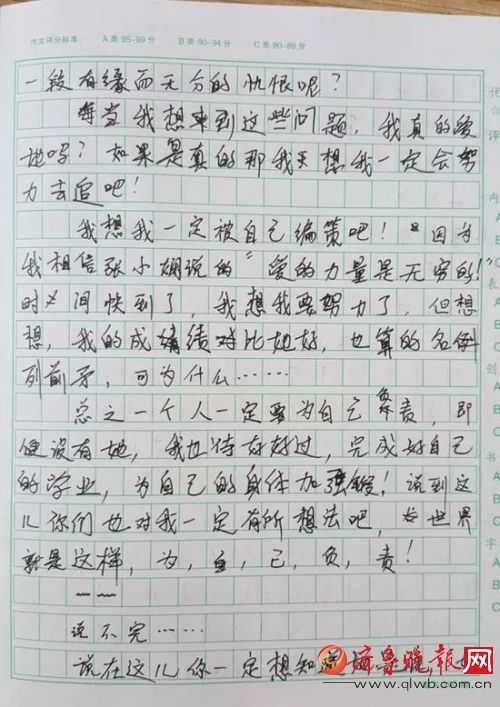 作文评分标准: A类95-99分 B类90-94分 C类80-89分
一段有缘而无分的仇恨呢?
每当我想来到这些问题,我真的爱
她吗?如果是真的那我天想我一定会努
力去追吧!
我想我一定被自己编策吧!“因为
我相信张小娴说的“爱的力量是无穷的!”
时间快到了,我想我要努力了,但想
想,我的成绩对比她好,也算的名
列前矛,可为什么……
总之一个人一定要为自己负责,即
使没有她,我也待好好过,完成好自己
的学业,为自己的身体加强锻!说到这
儿你们也对我一定有所想法吧,世界
就是这样,为,自,己,负,责!
——
说不完……
说在这儿你一定想知道
齐鲁晚报网
www.qlwb.com.cn